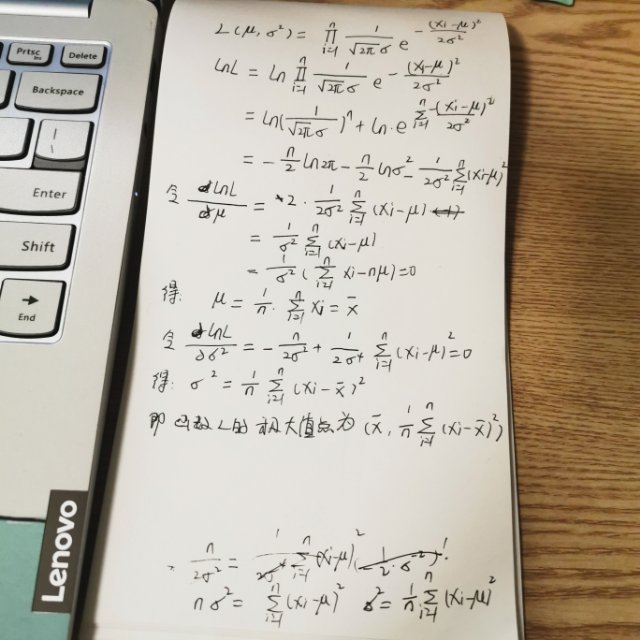 Prtsc
Ins
Delete
Backspace
|
\
Enter
Shift
→
End
Lenovo
L(μ, σ²) = ∏_{i=1}^{n} \frac{1}{\sqrt{2π}σ} e^{-\frac{(x_i-μ)²}{2σ²}}
lnL = ln ∏_{i=1}^{n} \frac{1}{\sqrt{2π}σ} e^{-\frac{(x_i-μ)²}{2σ²}}
= ln(\frac{1}{\sqrt{2π}σ})^n + ln·e^{∑_{i=1}^{n} -\frac{(x_i-μ)²}{2σ²}}
= -\frac{n}{2} ln2π - \frac{n}{2} lnσ² - \frac{1}{2σ²} ∑_{i=1}^{n} (x_i-μ)²
令 \frac{∂lnL}{∂μ} = 2·\frac{1}{2σ²} ∑_{i=1}^{n} (x_i-μ)
= \frac{1}{σ²} ∑_{i=1}^{n} (x_i-μ)
= \frac{1}{σ²} (∑_{i=1}^{n} x_i - nμ) = 0
得: μ = \frac{1}{n}·∑_{i=1}^{n} x_i = \bar{x}
令 \frac{∂lnL}{∂σ²} = -\frac{n}{2σ²} + \frac{1}{2σ⁴} ∑_{i=1}^{n} (x_i-μ)² = 0
得: σ² = \frac{1}{n} ∑_{i=1}^{n} (x_i-\bar{x})²
即函数L的极大值点为 (\bar{x}, \frac{1}{n} ∑_{i=1}^{n} (x_i-\bar{x})²)
\frac{n}{2σ²} = \frac{1}{2σ⁴} ∑_{i=1}^{n} (x_i-μ)²
nσ² = ∑_{i=1}^{n} (x_i-μ)² σ² = \frac{1}{n} ∑_{i=1}^{n} (x_i-μ)²